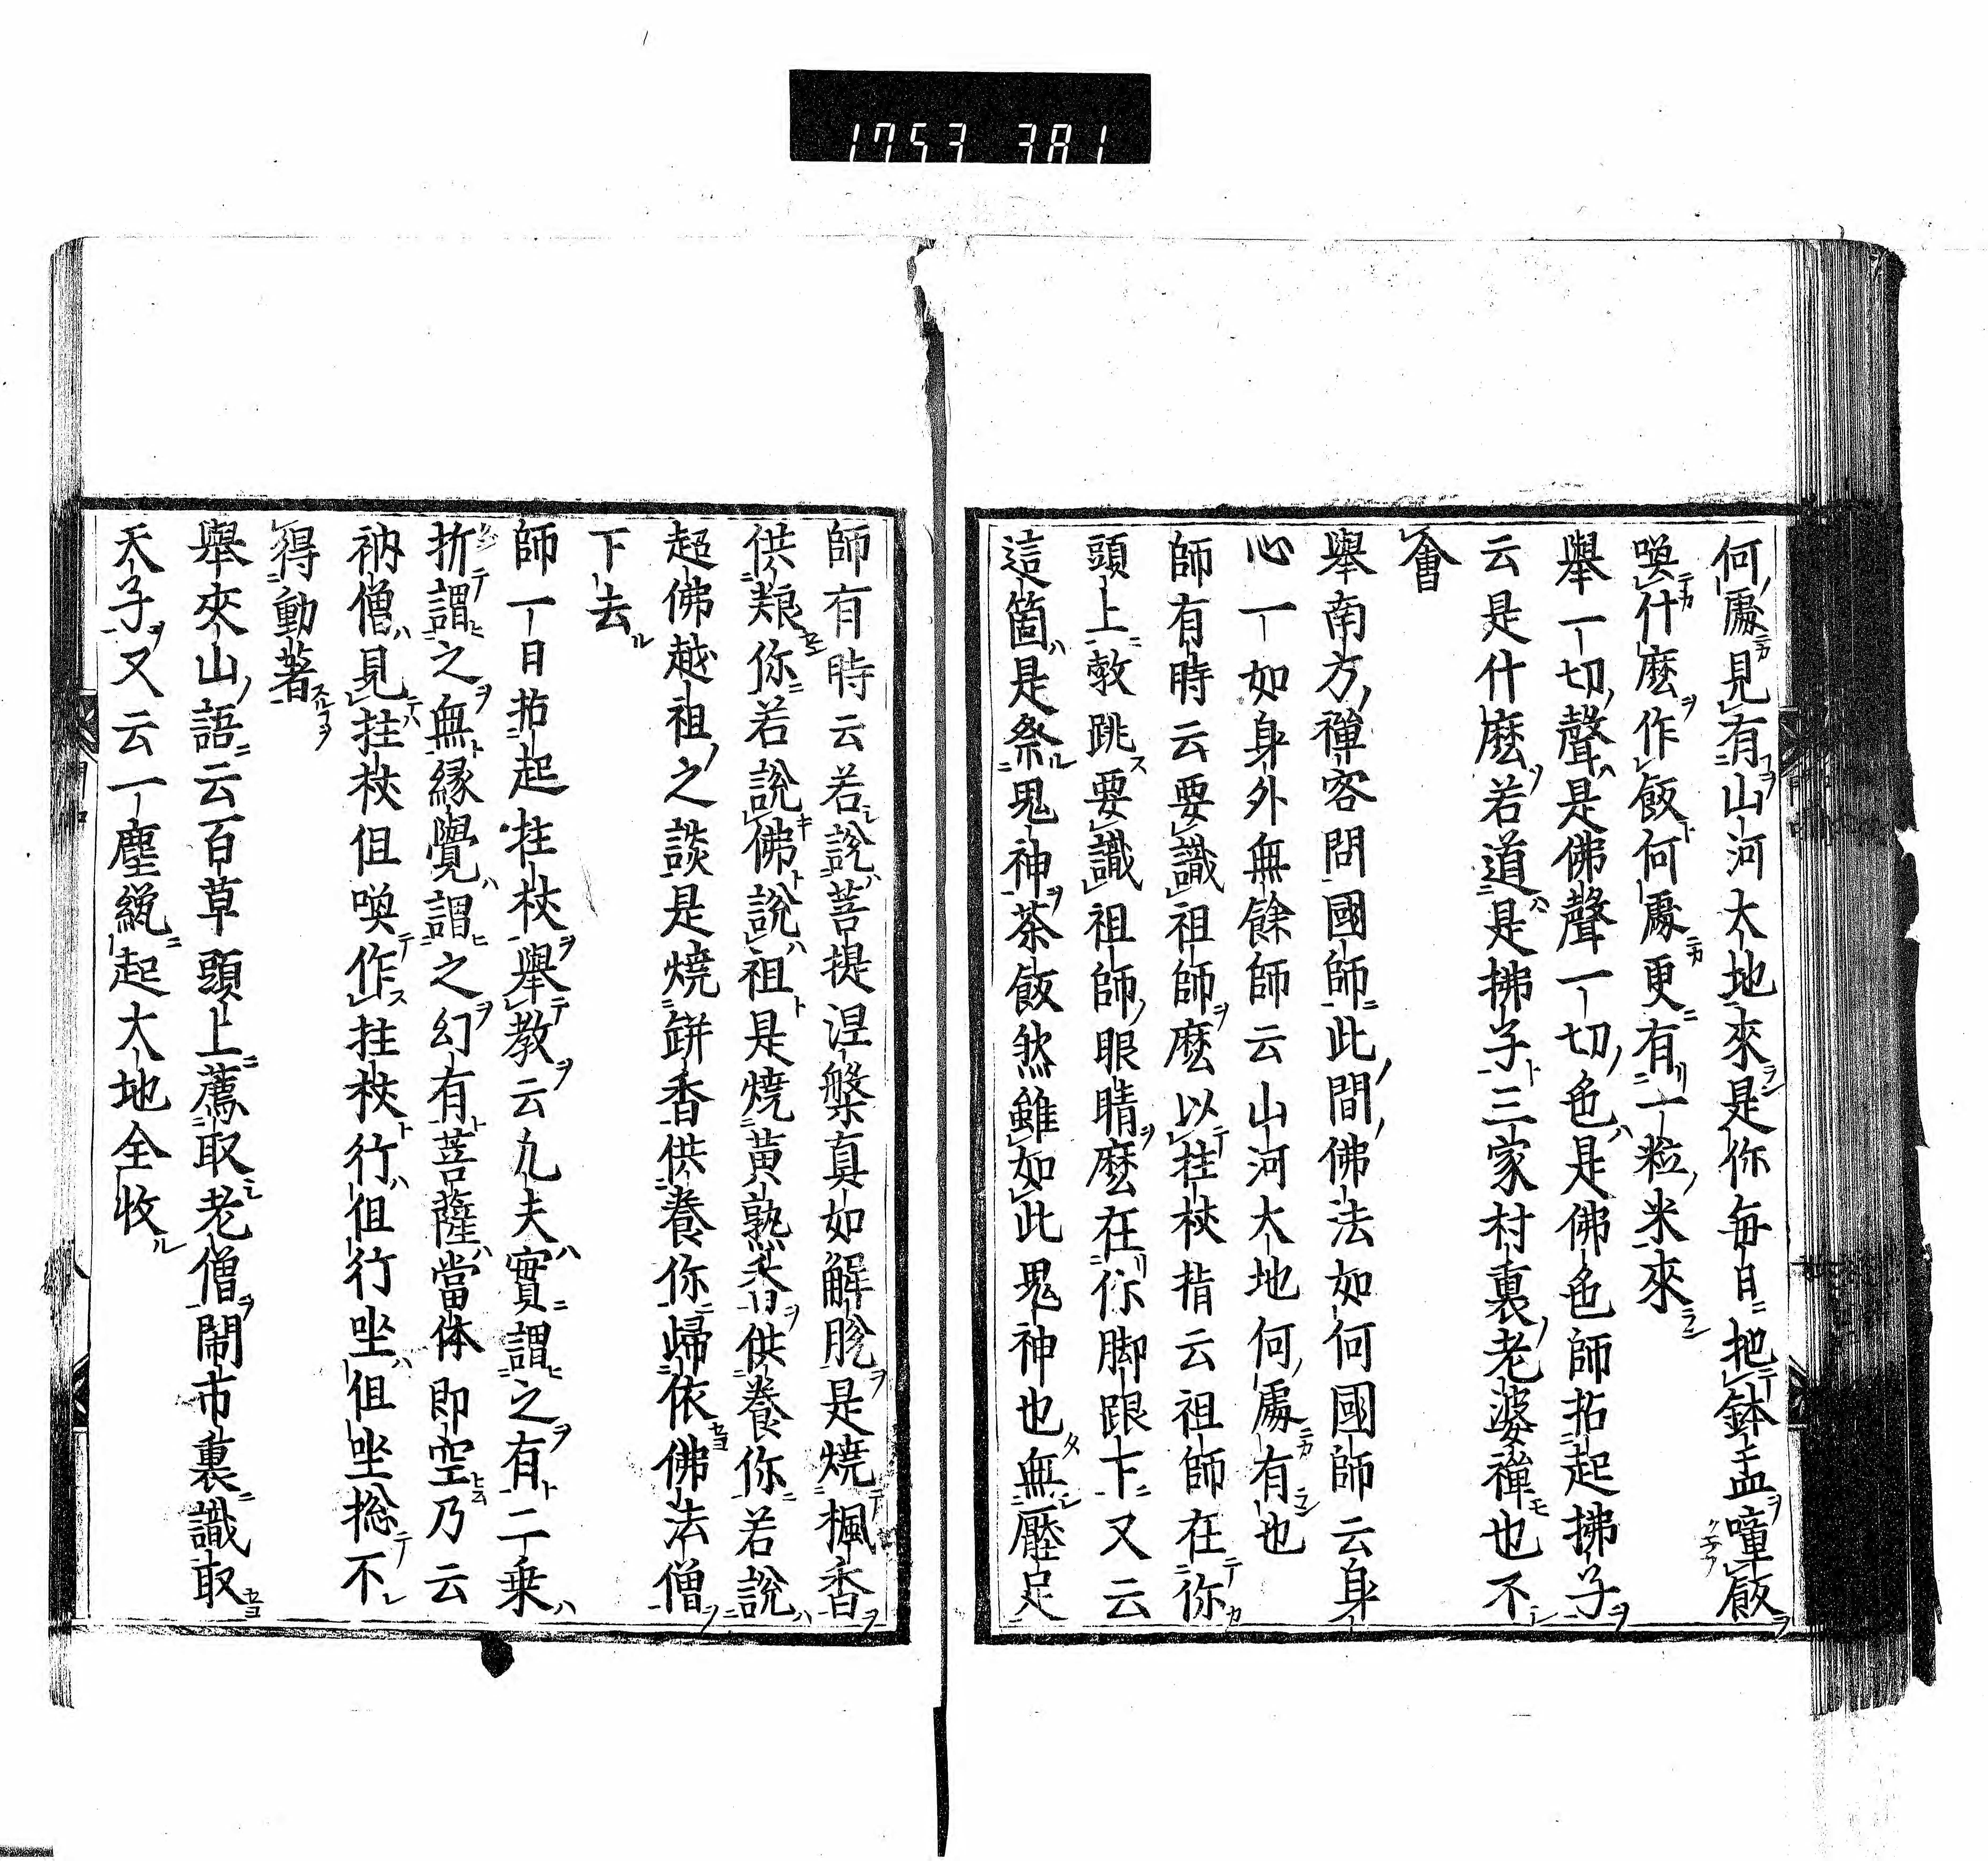 1753 381
何處見有山河大地來是你每日把鉢盂噇飯
喚什麼作飯何處更有一粒米來
舉一切聲是佛聲一切色是佛色師拈起拂子
云是什麼若道是拂子三家村裏老婆禪也不
會
舉南方禪客問國師此間佛法如何國師云身
心一如身外無餘師云山河大地何處有也
師有時云要識祖師麼以拄杖指云祖師在你
頭上教跳要識祖師眼睛麼在你脚跟下又云
這箇是祭鬼神茶飯然雖如此鬼神也無壓足
師有時云若說菩提涅槃真如解脫是燒楓香
供粮你若說佛說祖是燒黃熟香供養你若說
超佛越祖之談是燒缾香供養你歸依佛法僧
下去
師一日拈起拄杖舉教云凢夫實謂之有二乗
折謂之無縁覺謂之幻有菩薩當体即空乃云
衲僧見拄杖但喚作拄杖行但行坐但坐捴不
得動著
舉夾山語云百草頭上薦取老僧鬧市裏識取
天子又云一塵纔起大地全收